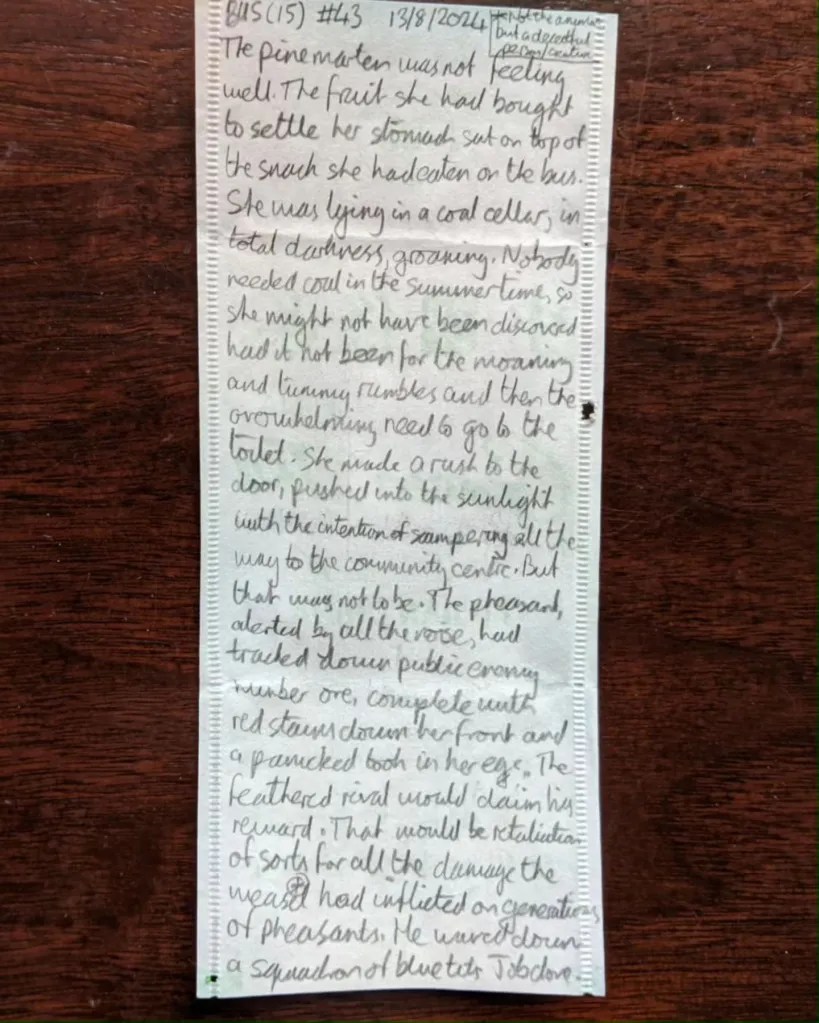 BUS (15) #43 13/8/2024
not the animal
but a deceitful
person/creature
The pinemarten was not feeling
well. The fruit she had bought
to settle her stomach sat on top of
the snack she had eaten on the bus.
She was lying in a coal cellar, in
total darkness, groaning. Nobody
needed coal in the summertime, so
she might not have been discovered
had it not been for the moaning
and tummy rumbles and then the
overwhelming need to go to the
toilet. She made a rush to the
door, pushed into the sunlight
with the intention of scampering all the
way to the community centre. But
that was not to be. The pheasant,
alerted by all the noise, had
tracked down public enemy
number one, complete with
red stains down her front and
a panicked look in her eye. The
feathered rival would claim his
reward. That would be retaliation
of sorts for all the damage the
weasel had inflicted on generations
of pheasants. He waved down
a squadron of blue tits. Job done.